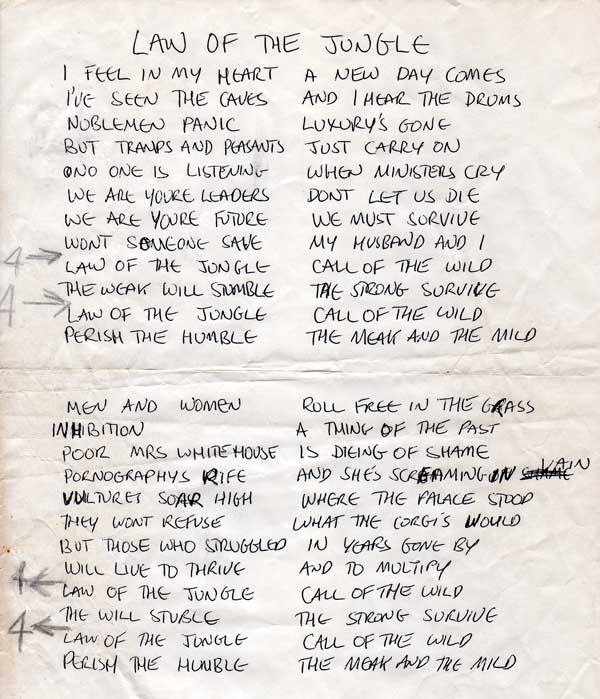 LAW OF THE JUNGLE
I FEEL IN MY HEART A NEW DAY COMES
I'VE SEEN THE CAVES AND I HEAR THE DRUMS
NOBLEMEN PANIC LUXURY'S GONE
BUT TRAMPS AND PEASANTS JUST CARRY ON
NO ONE IS LISTENING WHEN MINISTERS CRY
WE ARE YOURE LEADERS DONT LET US DIE
WE ARE YOURE FUTURE WE MUST SURVIVE
WONT SOMEONE SAVE MY HUSBAND AND I
4 → LAW OF THE JUNGLE CALL OF THE WILD
THE WEAK WILL STUMBLE THE STRONG SURVIVE
4 → LAW OF THE JUNGLE CALL OF THE WILD
PERISH THE HUMBLE THE MEAK AND THE MILD
MEN AND WOMEN ROLL FREE IN THE GRASS
INHIBITION A THING OF THE PAST
POOR MRS WHITEHOUSE IS DIEING OF SHAME
PORNOGRAPHYS RIFE AND SHE'S SCREAMING IN VAIN
VULTURES SOAR HIGH WHERE THE PALACE STOOD
THEY WONT REFUSE WHAT THE CORGI'S WOULD
BUT THOSE WHO STRUGGLED IN YEARS GONE BY
WILL LIVE TO THRIVE AND TO MULTIPY
4 ← LAW OF THE JUNGLE CALL OF THE WILD
THE WILL STUBLE THE STRONG SURVIVE
4 ← LAW OF THE JUNGLE CALL OF THE WILD
PERISH THE HUMBLE THE MEAK AND THE MILD